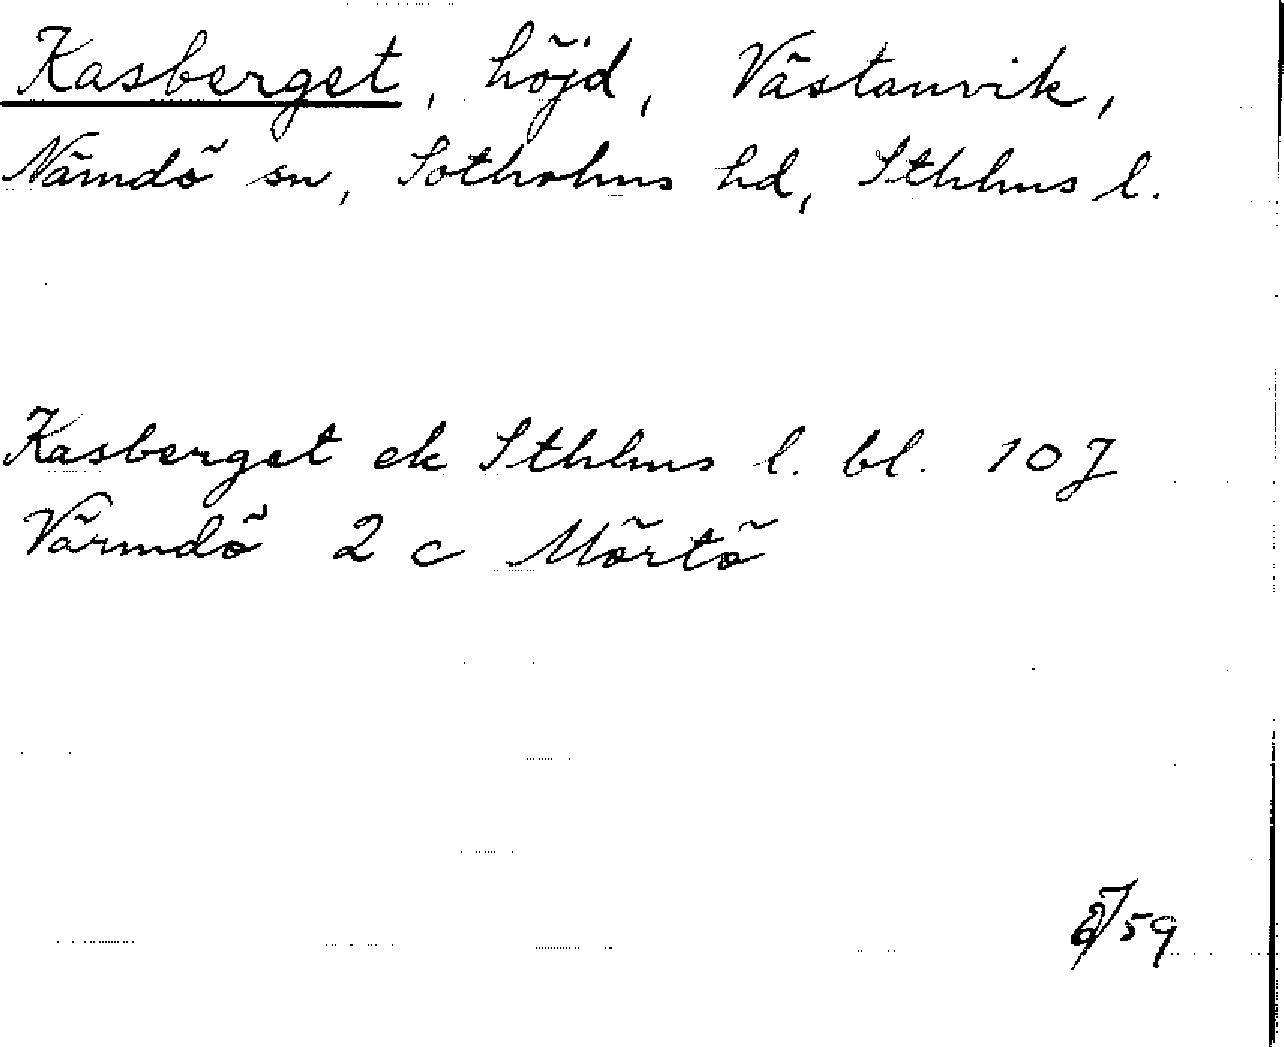 Kasberget, höjd, Västanvik,
Nämdö sn, Sotholms hd, Sthlms l.
Kasberget ek Sthlms l. bl. 10J
Värmdö 2 c Mörtö
/59